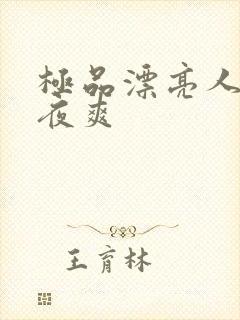 極品漂亮人
夜爽
王育林